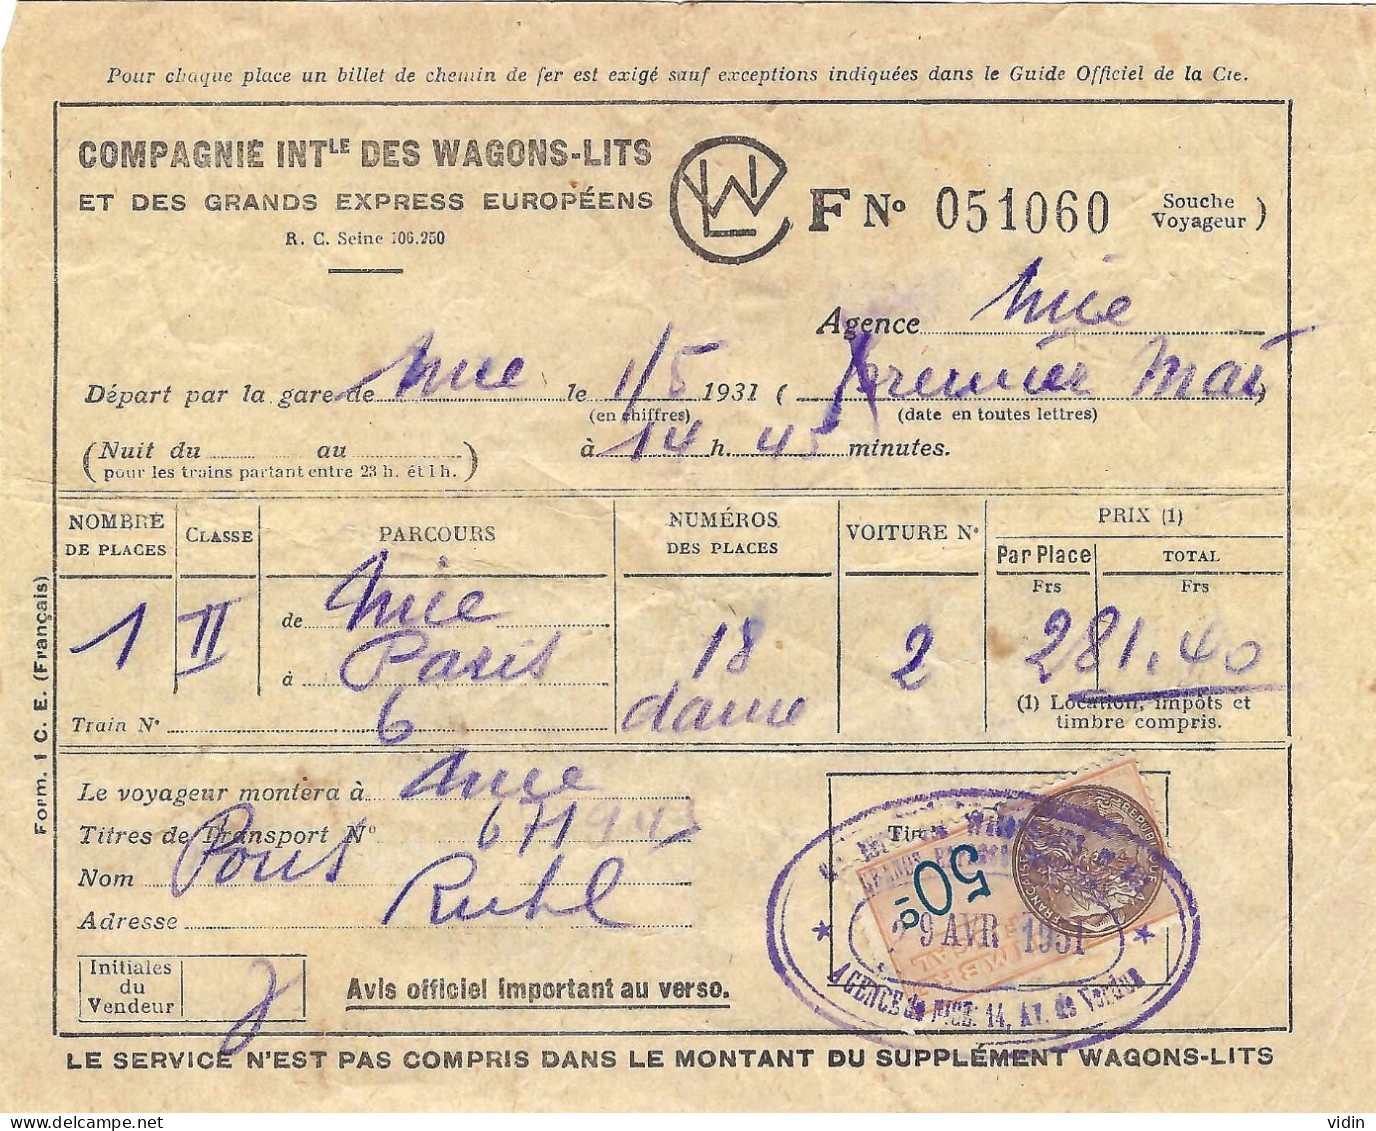 Pour chaque place un billet de chemin de fer est exigé sauf exceptions indiquées dans le Guide Officiel de la Cie.
COMPAGNIE INTLE DES WAGONS-LITS
ET DES GRANDS EXPRESS EUROPÉENS
R. C. Seine 106.250
WL
F No 051060
Souche
Voyageur )
Agence Nice
Départ par la gare de Nice le 1/5 1931 ( premier Mai )
(en chiffres) (date en toutes lettres)
(Nuit du au )
pour les trains partant entre 23 h. et 1 h.
à 14 h. 45 minutes.
NOMBRE DE PLACES
CLASSE
PARCOURS
NUMÉROS DES PLACES
VOITURE No
PRIX (1)
Par Place TOTAL
Frs Frs
1 II de Nice 18 2 281.40
à Paris dame
Train No 6
(1) Location, impôts et
timbre compris.
Form. 1 C. E. (Français)
Le voyageur montera à Nice
Titres de Transport No 671943
Nom Pons
Adresse Ruhl
Initiales
du
Vendeur
Avis officiel important au verso.
50c
29 AVR 1931
AGENCE de NICE: 14, Av. de Verdun
LE SERVICE N'EST PAS COMPRIS DANS LE MONTANT DU SUPPLÉMENT WAGONS-LITS
vidin